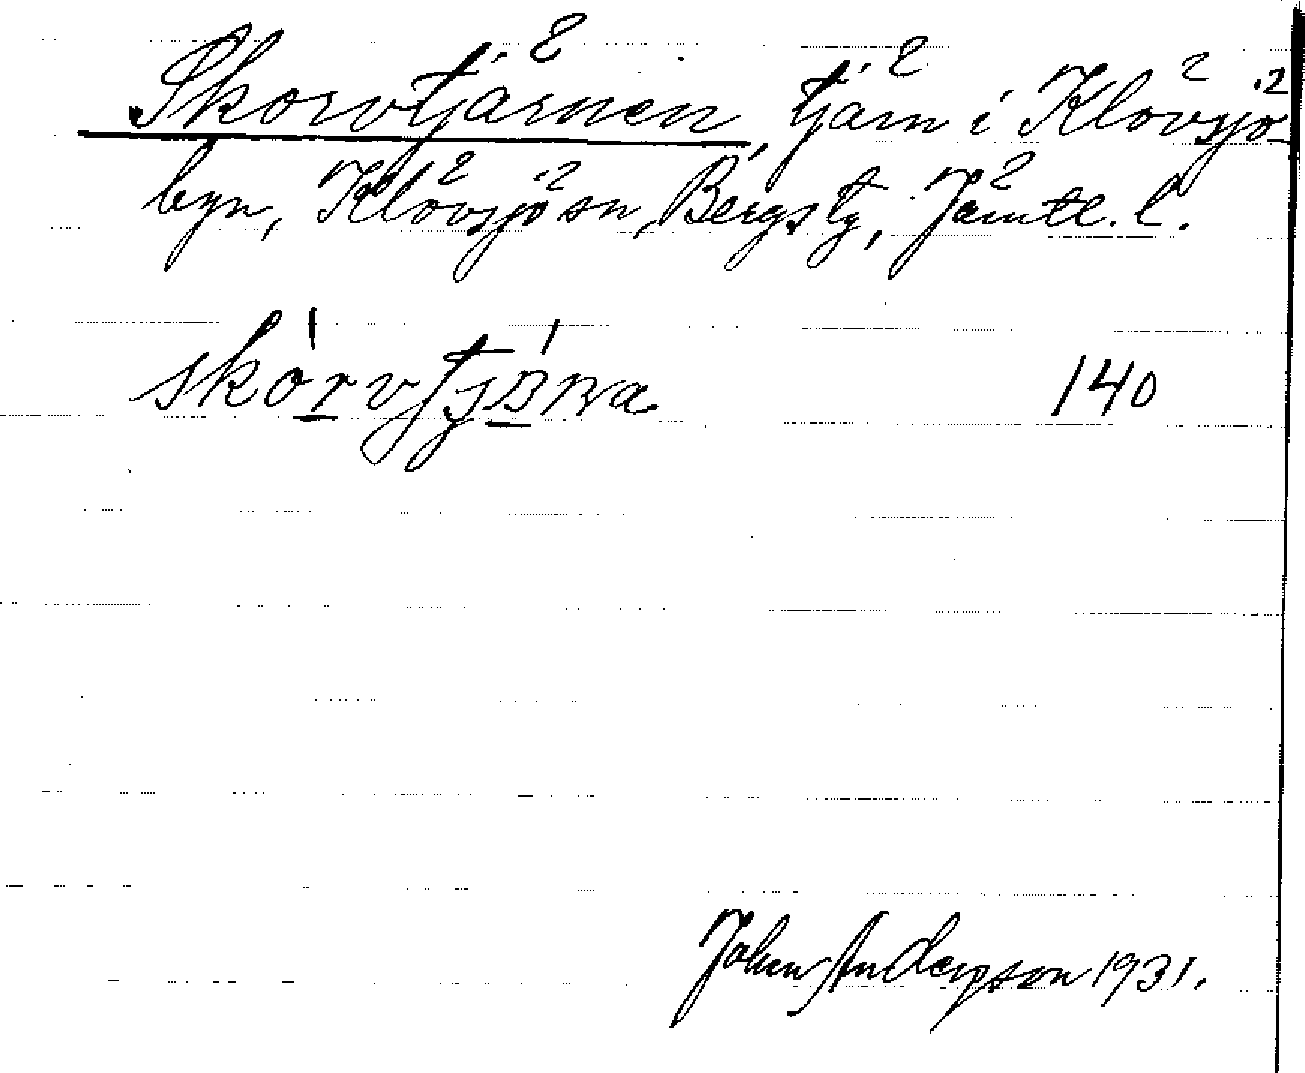 Skorvtjärnen, tjärn i Klövsjö-
byn, Klövsjö sn, Bergs tg, Jämtl. l.
skòrvtjänna 140
John Anderson 1931.